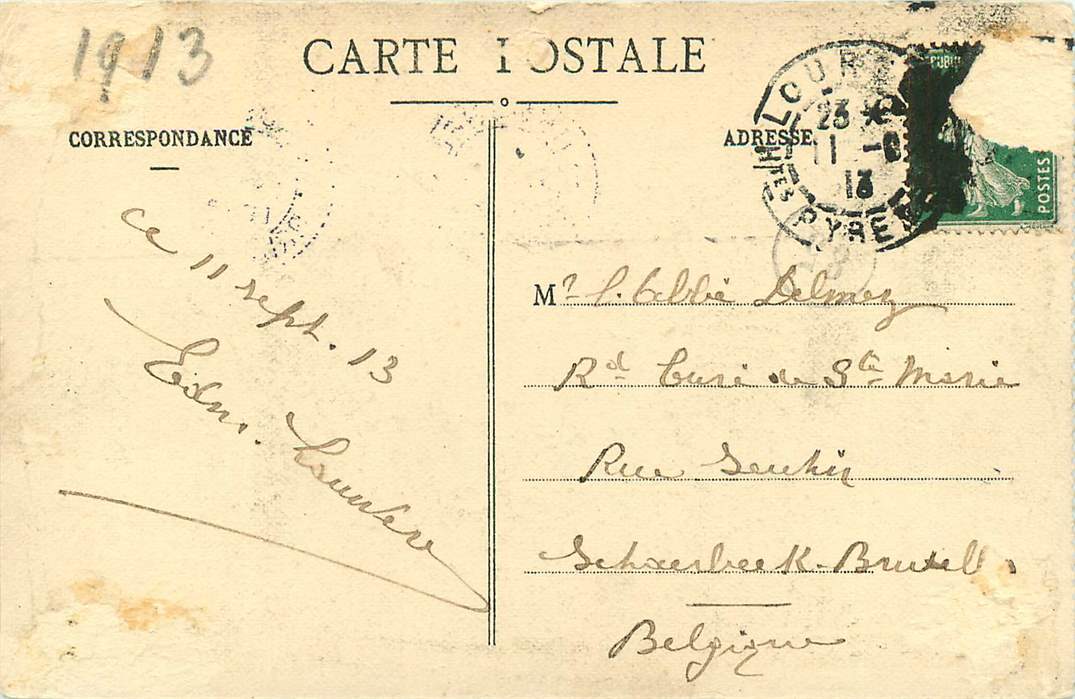 1913
CARTE POSTALE
CORRESPONDANCE
ADRESSE
LOURDES
23
11 -9
13
HTES PYRENEES
POSTES
ce 11 sept. 13
Edm.
Mr l'abbé Delmez
Rd Curé de Ste Marie
Rue Seutin
Schaerbeek-Bruxelles
Belgique